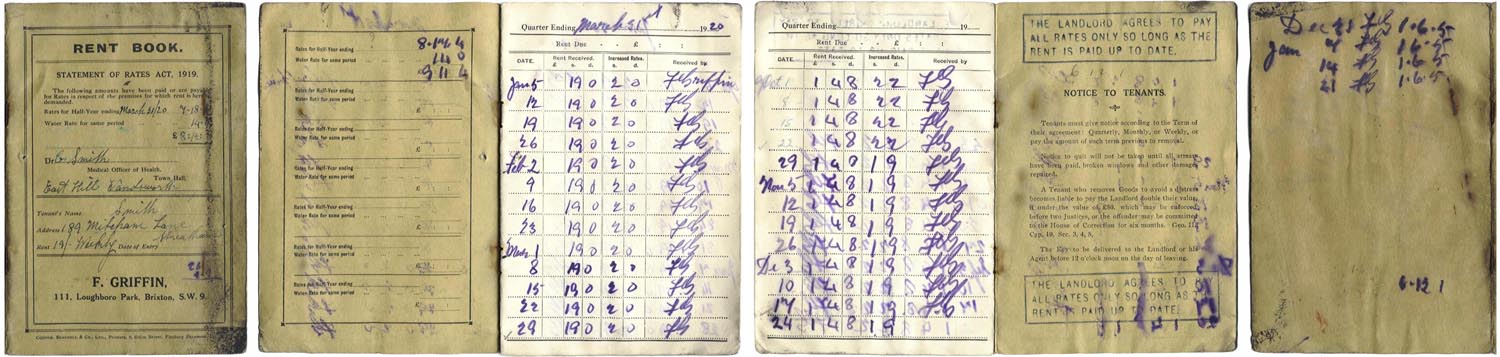 RENT BOOK.
STATEMENT OF RATES ACT, 1919.
The following amounts have been paid or are payable
for Rates in respect of the premises for which rent is here
demanded.
Rates for Half-Year ending March 31/20
Water Rate for same period
£
Dr C. Smith
Medical Officer of Health.
Town Hall,
East Hill Wandsworth
Tenant's Name Smith
Address 189 Mitcham Lane
Streatham
Rent 19/- Weekly Date of Entry
F. GRIFFIN,
111, Loughboro Park, Brixton, S.W. 9.
Rates for Half-Year ending 8.17.4
Water Rate for same period 14 0
9 11 4
Rates for Half-Year ending
Water Rate for same period
Rates for Half-Year ending
Water Rate for same period
Rates for Half-Year ending
Water Rate for same period
Rates for Half-Year ending
Water Rate for same period
Rates for Half-Year ending
Water Rate for same period
Rates for Half-Year ending
Water Rate for same period
Quarter Ending March 31st 1920
Rent Due £ : :
DATE. Rent Received. Increased Rates. Received by
£ s. d. s. d.
Jan 5 19 0 2 0 F Griffin
12 19 0 2 0 FG
19 19 0 2 0 FG
26 19 0 2 0 FG
Feb 2 19 0 2 0 FG
9 19 0 2 0 FG
16 19 0 2 0 FG
23 19 0 2 0 FG
Mar 1 19 0 2 0 FG
8 19 0 2 0 FG
15 19 0 2 0 FG
22 19 0 2 0 FG
29 19 0 2 0 FG
Quarter Ending 19
Rent Due £ : :
DATE. Rent Received. Increased Rates. Received by
£ s. d. s. d.
Oct 1 1 4 8 2 2 FG
8 1 4 8 2 2 FG
15 1 4 8 2 2 FG
22 1 4 8 2 2 FG
29 1 4 8 1 9 FG
Nov 5 1 4 8 1 9 FG
12 1 4 8 1 9 FG
19 1 4 8 1 9 FG
26 1 4 8 1 9 FG
De 3 1 4 8 1 9 FG
10 1 4 8 1 9 FG
17 1 4 8 1 9 FG
24 1 4 8 1 9 FG
THE LANDLORD AGREES TO PAY
ALL RATES ONLY SO LONG AS THE
RENT IS PAID UP TO DATE.
NOTICE TO TENANTS.
Tenants must give notice according to the Term of
their agreement: Quarterly, Monthly, or Weekly, or
pay the amount of such term previous to removal.
Notice to quit will not be taken until all arrears
have been paid, broken windows and other damages
repaired.
A Tenant who removes Goods to avoid a distress
becomes liable to pay the Landlord double their value,
if under the value of £50, which may be enforced
before two Justices, or the offender may be committed
to the House of Correction for six months. Geo. II.
Cap. 19, Sec. 3, 4, 5.
The Key to be delivered to the Landlord or his
Agent before 12 o'clock noon on the day of leaving.
THE LANDLORD AGREES TO PAY
ALL RATES ONLY SO LONG AS THE
RENT IS PAID UP TO DATE.
Dec FG 1.6.5
Jan 7 FG 1.6.5
14 FG 1.6.5
21 FG 1.6.5
6.12 1